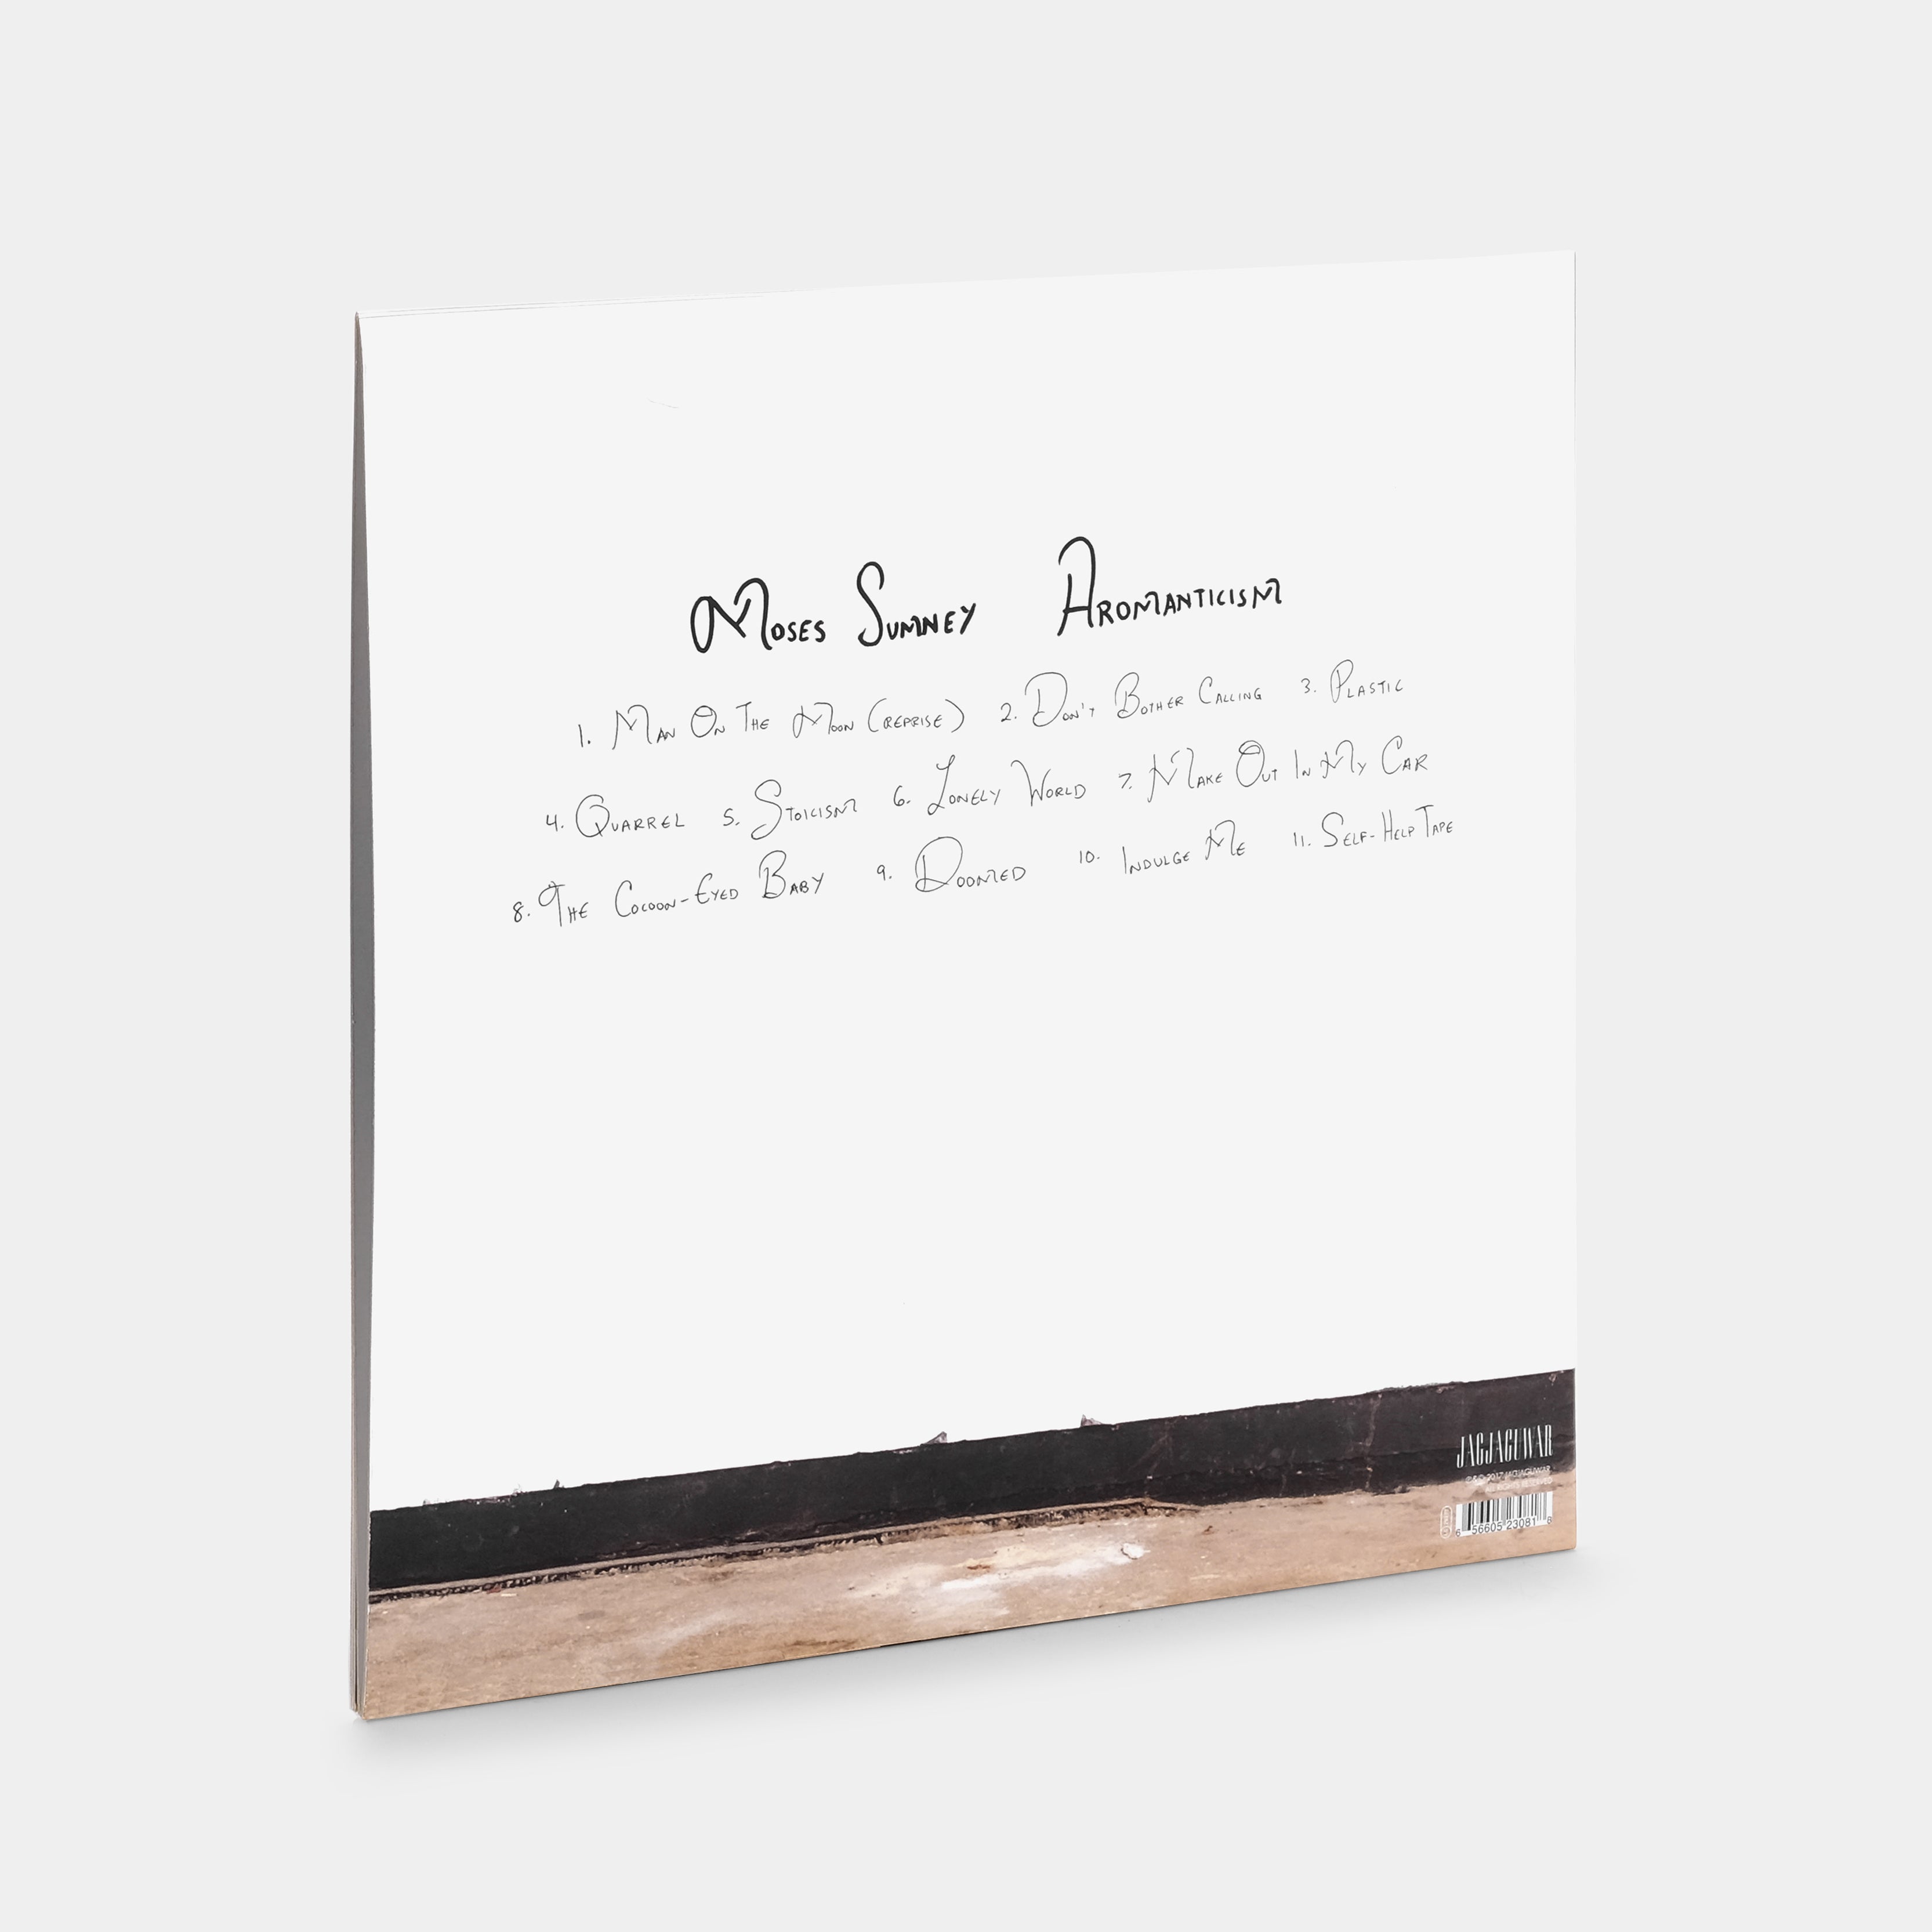 Moses Sumney Aromanticism
1. Man On The Moon (reprise) 2. Don't Bother Calling 3. Plastic
4. Quarrel 5. Stoicism 6. Lonely World 7. Make Out In My Car
8. The Cocoon-Eyed Baby 9. Doomed 10. Indulge Me 11. Self-Help Tape
JAGJAGUWAR
2017 JAGJAGUWAR
6 56605 23081 8